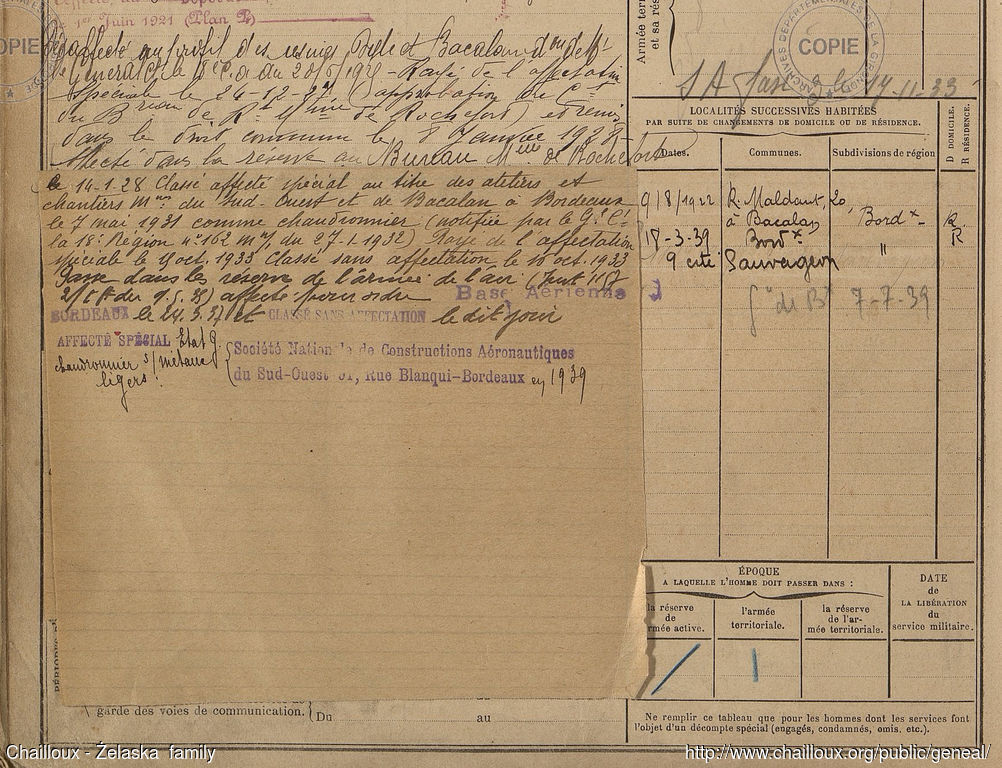 1er Juin 1921 (Plan P)
affecté au profit des usines Dyle et Bacalan d'on de Mr
le Général Ct la Don C. a du 20/6/1921 - Rayé de l'affectation
spéciale le 24-12-27 (approbation du Ct
du Bureau de Rt Mme de Rochefort) et remis
dans le Droit commun le 8 Janvier 1928
affecté dans la réserve au Bureau Mme de Rochefort
le 14-1-28 Classé affecté spécial au titre des ateliers et
chantiers Mmes du Sud-Ouest et de Bacalan à Bordeaux
le 7 mai 1931 comme chaudronnier (notifiée par le Gl Ct
la 18e Région n° 162 Mob, du 27-1-1932) Rayé de l'affectation
spéciale le 9 oct. 1933 Classé sans affectation le 16 oct. 1933
Passé dans les réserves de l'armée de l'air
affecté pour ordre Base Aérienne
BORDEAUX le 24.3.37 et CLASSÉ SANS AFFECTATION le dit jour
AFFECTÉ SPÉCIAL Etat G.
chaudronnier s/métaux
légers.
Société Nationale de Constructions Aéronautiques
du Sud-Ouest 91, Rue Blanqui-Bordeaux en 1939
Armée terri
et sa rés
COPIE
COPIE
ARCHIVES DÉPARTEMENTALES DE LA GIRONDE
17-11-33
LOCALITÉS SUCCESSIVES HABITÉES
PAR SUITE DE CHANGEMENTS DE DOMICILE OU DE RÉSIDENCE.
Dates.
Communes.
Subdivisions de région
D DOMICILE.
R RÉSIDENCE.
9/8/1922 R. Maldant, 20, Bordx R
à Bacalan
17-3-39 Bordx " R
9 cité Sauvageon
7-7-39
ÉPOQUE
A LAQUELLE L'HOMME DOIT PASSER DANS :
la réserve
de
rmée active.
l'armée
territoriale.
la réserve
de l'ar-
mée territoriale.
DATE
de
LA LIBÉRATION
du
service militaire.
garde des voies de communication.
Du
au
Ne remplir ce tableau que pour les hommes dont les services font
l'objet d'un décompte spécial (engagés, condamnés, omis. etc.).
Chailloux - Żelaska family
http://www.chailloux.org/public/geneal/